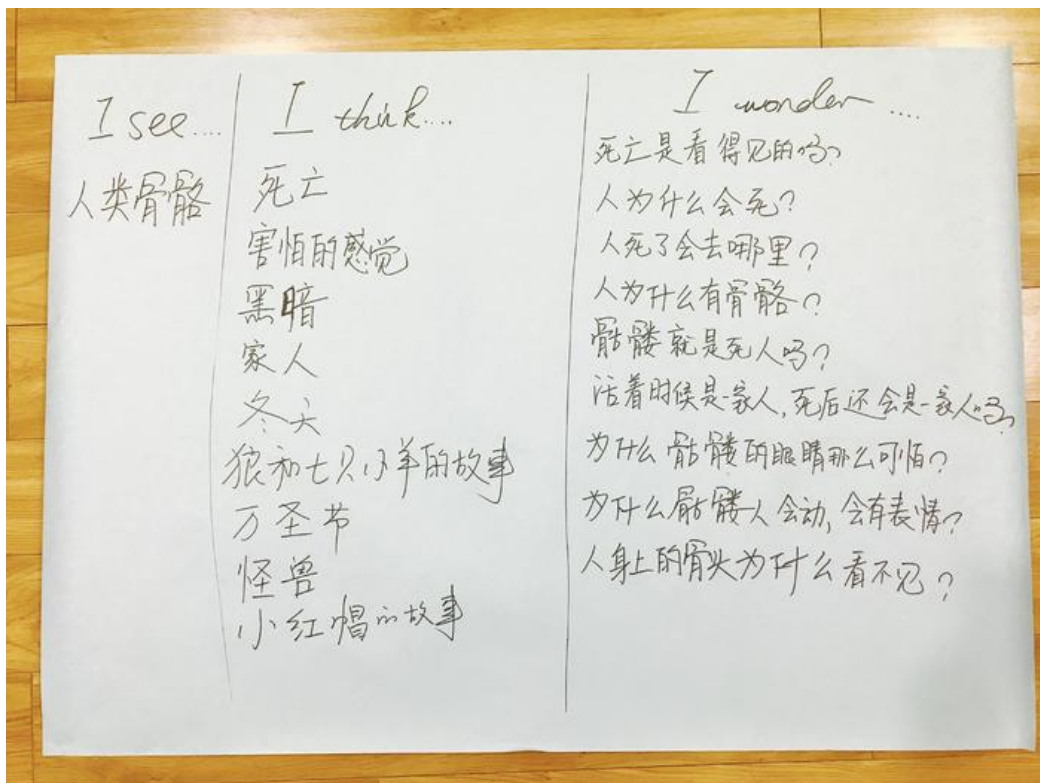 I see....
人类骨骼
I think....
死亡
害怕的感觉
黑暗
家人
冬天
狼和七只小羊的故事
万圣节
怪兽
小红帽的故事
I wonder....
死亡是看得见的吗?
人为什么会死?
人死了会去哪里?
人为什么有骨骼?
骷髅就是死人吗?
活着时候是一家人,死后还会是一家人吗?
为什么骷髅的眼睛那么可怕?
为什么骷髅人会动,会有表情?
人身上的骨头为什么看不见?